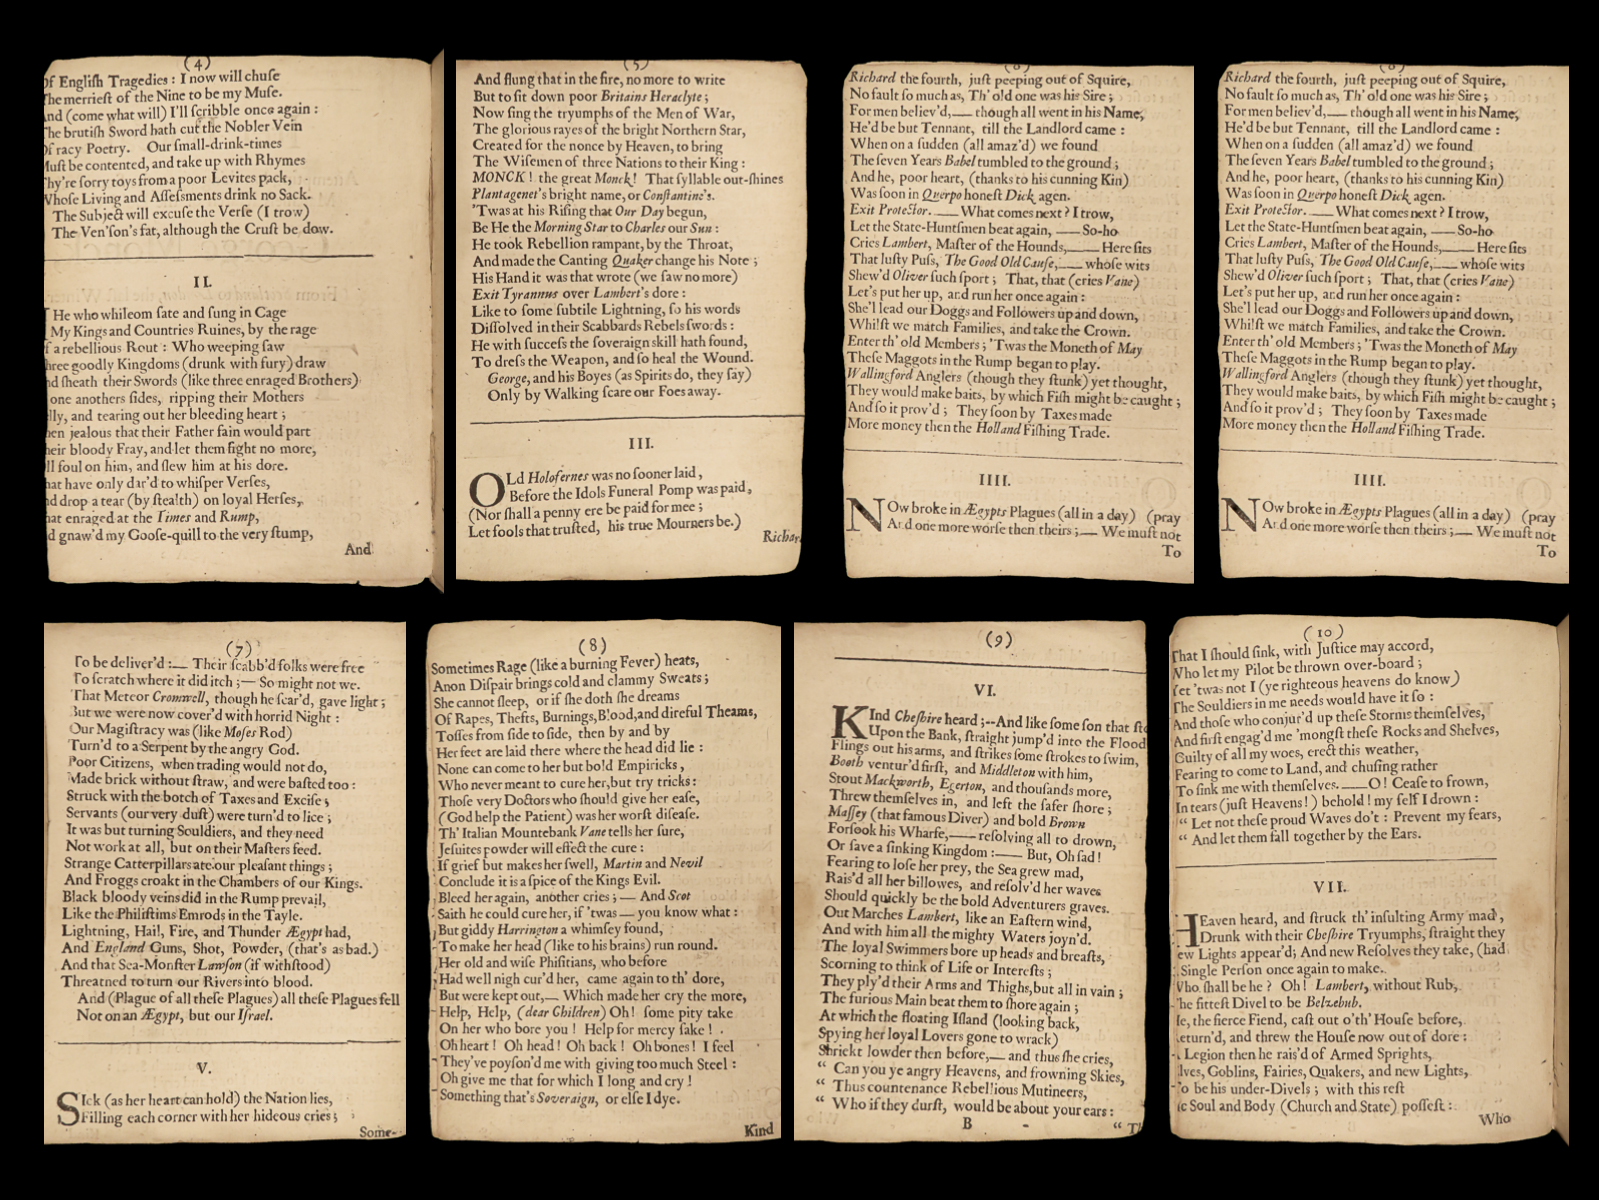 (4)
Of Engliſh Tragedies: I now will chuſe
The merrieſt of the Nine to be my Muſe.
And (come what will) I'll ſcribble once again:
The brutiſh Sword hath cut the Nobler Vein
Of racy Poetry. Our ſmall-drink-times
Muſt be contented, and take up with Rhymes
Thy're ſorry toys from a poor Levites pack,
Whoſe Living and Aſſeſsments drink no Sack.
The Subject will excuſe the Verſe (I trow)
The Ven'ſon's fat, although the Cruſt be dow.
II.
He who whileom ſate and ſung in Cage
My Kings and Countries Ruines, by the rage
f a rebellious Rout: Who weeping ſaw
hree goodly Kingdoms (drunk with fury) draw
nd ſheath their Swords (like three enraged Brothers)
one anothers ſides, ripping their Mothers
lly, and tearing out her bleeding heart;
hen jealous that their Father fain would part
heir bloody Fray, and let them fight no more,
ll foul on him, and ſlew him at his dore.
hat have only dar'd to whiſper Verſes,
nd drop a tear (by ſtealth) on loyal Herſes,
hat enraged at the Times and Rump,
d gnaw'd my Gooſe-quill to the very ſtump,
And
(5)
And flung that in the fire, no more to write
But to ſit down poor Britains Heraclyte;
Now ſing the tryumphs of the Men of War,
The glorious rayes of the bright Northern Star,
Created for the nonce by Heaven, to bring
The Wiſemen of three Nations to their King:
MONCK! the great Monck! That ſyllable out-ſhines
Plantagenet's bright name, or Conſtantine's.
'Twas at his Riſing that Our Day begun,
Be He the Morning Star to Charles our Sun:
He took Rebellion rampant, by the Throat,
And made the Canting Quaker change his Note;
His Hand it was that wrote (we ſaw no more)
Exit Tyrannus over Lambert's dore:
Like to ſome ſubtile Lightning, ſo his words
Diſſolved in their Scabbards Rebels ſwords:
He with ſucceſs the ſoveraign skill hath found,
To dreſs the Weapon, and ſo heal the Wound.
George, and his Boyes (as Spirits do, they ſay)
Only by Walking ſcare our Foes away.
III.
OLd Holofernes was no ſooner laid,
Before the Idols Funeral Pomp was paid,
(Nor ſhall a penny ere be paid for mee;
Let fools that truſted, his true Mourners be.)
Richar
(6)
Richard the fourth, juſt peeping out of Squire,
No fault ſo much as, Th' old one was his Sire;
For men believ'd,— though all went in his Name,
He'd be but Tennant, till the Landlord came:
When on a ſudden (all amaz'd) we found
The ſeven Years Babel tumbled to the ground;
And he, poor heart, (thanks to his cunning Kin)
Was ſoon in Querpo honeſt Dick agen.
Exit Protector. — What comes next? I trow,
Let the State-Huntſmen beat again, — So-ho
Cries Lambert, Maſter of the Hounds,— Here ſits
That luſty Puſs, The Good Old Cauſe,— whoſe wits
Shew'd Oliver ſuch ſport; That, that (cries Vane)
Let's put her up, and run her once again:
She'll lead our Doggs and Followers up and down,
Whilſt we match Families, and take the Crown.
Enter th' old Members; 'Twas the Moneth of May
Theſe Maggots in the Rump began to play.
Wallingford Anglers (though they ſtunk) yet thought,
They would make baits, by which Fiſh might be caught;
And ſo it prov'd; They ſoon by Taxes made
More money then the Holland Fiſhing Trade.
IIII.
NOw broke in Ægypts Plagues (all in a day) (pray
And one more worſe then theirs;— We muſt not
To
(6)
Richard the fourth, juſt peeping out of Squire,
No fault ſo much as, Th' old one was his Sire;
For men believ'd,— though all went in his Name,
He'd be but Tennant, till the Landlord came:
When on a ſudden (all amaz'd) we found
The ſeven Years Babel tumbled to the ground;
And he, poor heart, (thanks to his cunning Kin)
Was ſoon in Querpo honeſt Dick agen.
Exit Protector. — What comes next? I trow,
Let the State-Huntſmen beat again, — So-ho
Cries Lambert, Maſter of the Hounds,— Here ſits
That luſty Puſs, The Good Old Cauſe,— whoſe wits
Shew'd Oliver ſuch ſport; That, that (cries Vane)
Let's put her up, and run her once again:
She'll lead our Doggs and Followers up and down,
Whilſt we match Families, and take the Crown.
Enter th' old Members; 'Twas the Moneth of May
Theſe Maggots in the Rump began to play.
Wallingford Anglers (though they ſtunk) yet thought,
They would make baits, by which Fiſh might be caught;
And ſo it prov'd; They ſoon by Taxes made
More money then the Holland Fiſhing Trade.
IIII.
NOw broke in Ægypts Plagues (all in a day) (pray
And one more worſe then theirs;— We muſt not
To
(7)
To be deliver'd:— Their ſcabb'd folks were free
To ſcratch where it did itch;— So might not we.
That Meteor Cromwell, though he ſcar'd, gave light;
But we were now cover'd with horrid Night:
Our Magiſtracy was (like Moſes Rod)
Turn'd to a Serpent by the angry God.
Poor Citizens, when trading would not do,
Made brick without ſtraw, and were baſted too:
Struck with the botch of Taxes and Exciſe;
Servants (our very duſt) were turn'd to lice;
It was but turning Souldiers, and they need
Not work at all, but on their Maſters feed.
Strange Catterpillars ate our pleaſant things;
And Froggs croakt in the Chambers of our Kings.
Black bloody veins did in the Rump prevail,
Like the Philiſtims Emrods in the Tayle.
Lightning, Hail, Fire, and Thunder Ægypt had,
And England Guns, Shot, Powder, (that's as bad.)
And that Sea-Monſter Lawſon (if withſtood)
Threatned to turn our Rivers into blood.
And (Plague of all theſe Plagues) all theſe Plagues fell
Not on an Ægypt, but our Iſrael.
V.
SIck (as her heart can hold) the Nation lies,
Filling each corner with her hideous cries;
Some-
(8)
Sometimes Rage (like a burning Fever) heats,
Anon Diſpair brings cold and clammy Sweats;
She cannot ſleep, or if ſhe doth ſhe dreams
Of Rapes, Thefts, Burnings, Blood, and direful Theams,
Toſſes from ſide to ſide, then by and by
Her feet are laid there where the head did lie:
None can come to her but bold Empiricks,
Who never meant to cure her, but try tricks:
Thoſe very Doctors who ſhould give her eaſe,
(God help the Patient) was her worſt diſeaſe.
Th' Italian Mountebank Vane tells her ſure,
Jeſuites powder will effect the cure:
If grief but makes her ſwell, Martin and Nevil
Conclude it is a ſpice of the Kings Evil.
Bleed her again, another cries;— And Scot
Saith he could cure her, if 'twas — you know what:
But giddy Harrington a whimſey found,
To make her head (like to his brains) run round.
Her old and wiſe Phiſitians, who before
Had well nigh cur'd her, came again to th' dore,
But were kept out,— Which made her cry the more,
Help, Help, (dear Children) Oh! ſome pity take
On her who bore you! Help for mercy ſake!
Oh heart! Oh head! Oh back! Oh bones! I feel
They've poyſon'd me with giving too much Steel:
Oh give me that for which I long and cry!
Something that's Soveraign, or elſe I dye.
Kind
(9)
VI.
KInd Cheſhire heard;--And like ſome ſon that ſto
Upon the Bank, ſtraight jump'd into the Flood
Flings out his arms, and ſtrikes ſome ſtrokes to ſwim,
Booth ventur'd firſt, and Middleton with him,
Stout Mackworth, Egerton, and thouſands more,
Threw themſelves in, and left the ſafer ſhore;
Maſſey (that famous Diver) and bold Brown
Forſook his Wharfe,— reſolving all to drown,
Or ſave a ſinking Kingdom:— But, Oh ſad!
Fearing to loſe her prey, the Sea grew mad,
Rais'd all her billowes, and reſolv'd her waves
Should quickly be the bold Adventurers graves.
Out Marches Lambert, like an Eaſtern wind,
And with him all the mighty Waters joyn'd.
The loyal Swimmers bore up heads and breaſts,
Scorning to think of Life or Intereſts;
They ply'd their Arms and Thighs, but all in vain;
The furious Main beat them to ſhore again;
At which the floating Iſland (looking back,
Spying her loyal Lovers gone to wrack)
Shriekt lowder then before,— and thus ſhe cries,
“ Can you ye angry Heavens, and frowning Skies,
“ Thus countenance Rebellious Mutineers,
“ Who if they durſt, would be about your ears:
B
“ Th
(10)
That I ſhould ſink, with Juſtice may accord,
Who let my Pilot be thrown over-board;
Yet 'twas not I (ye righteous heavens do know)
The Souldiers in me needs would have it ſo:
And thoſe who conjur'd up theſe Storms themſelves,
And firſt engag'd me 'mongſt theſe Rocks and Shelves,
Guilty of all my woes, erect this weather,
Fearing to come to Land, and chuſing rather
To ſink me with themſelves.— O! Ceaſe to frown,
In tears (juſt Heavens!) behold! my ſelf I drown:
“ Let not theſe proud Waves do't: Prevent my fears,
“ And let them fall together by the Ears.
VII.
HEaven heard, and ſtruck th' inſulting Army mad,
Drunk with their Cheſhire Tryumphs, ſtraight they
ew Lights appear'd; And new Reſolves they take, (had
Single Perſon once again to make.
Who ſhall be he? Oh! Lambert, without Rub,
The fitteſt Divel to be Belzebub.
He, the fierce Fiend, caſt out o'th' Houſe before,
eturn'd, and threw the Houſe now out of dore:
Legion then he rais'd of Armed Sprights,
lves, Goblins, Fairies, Quakers, and new Lights,
To be his under-Divels; with this reſt
ic Soul and Body (Church and State) poſſeſt:
Who